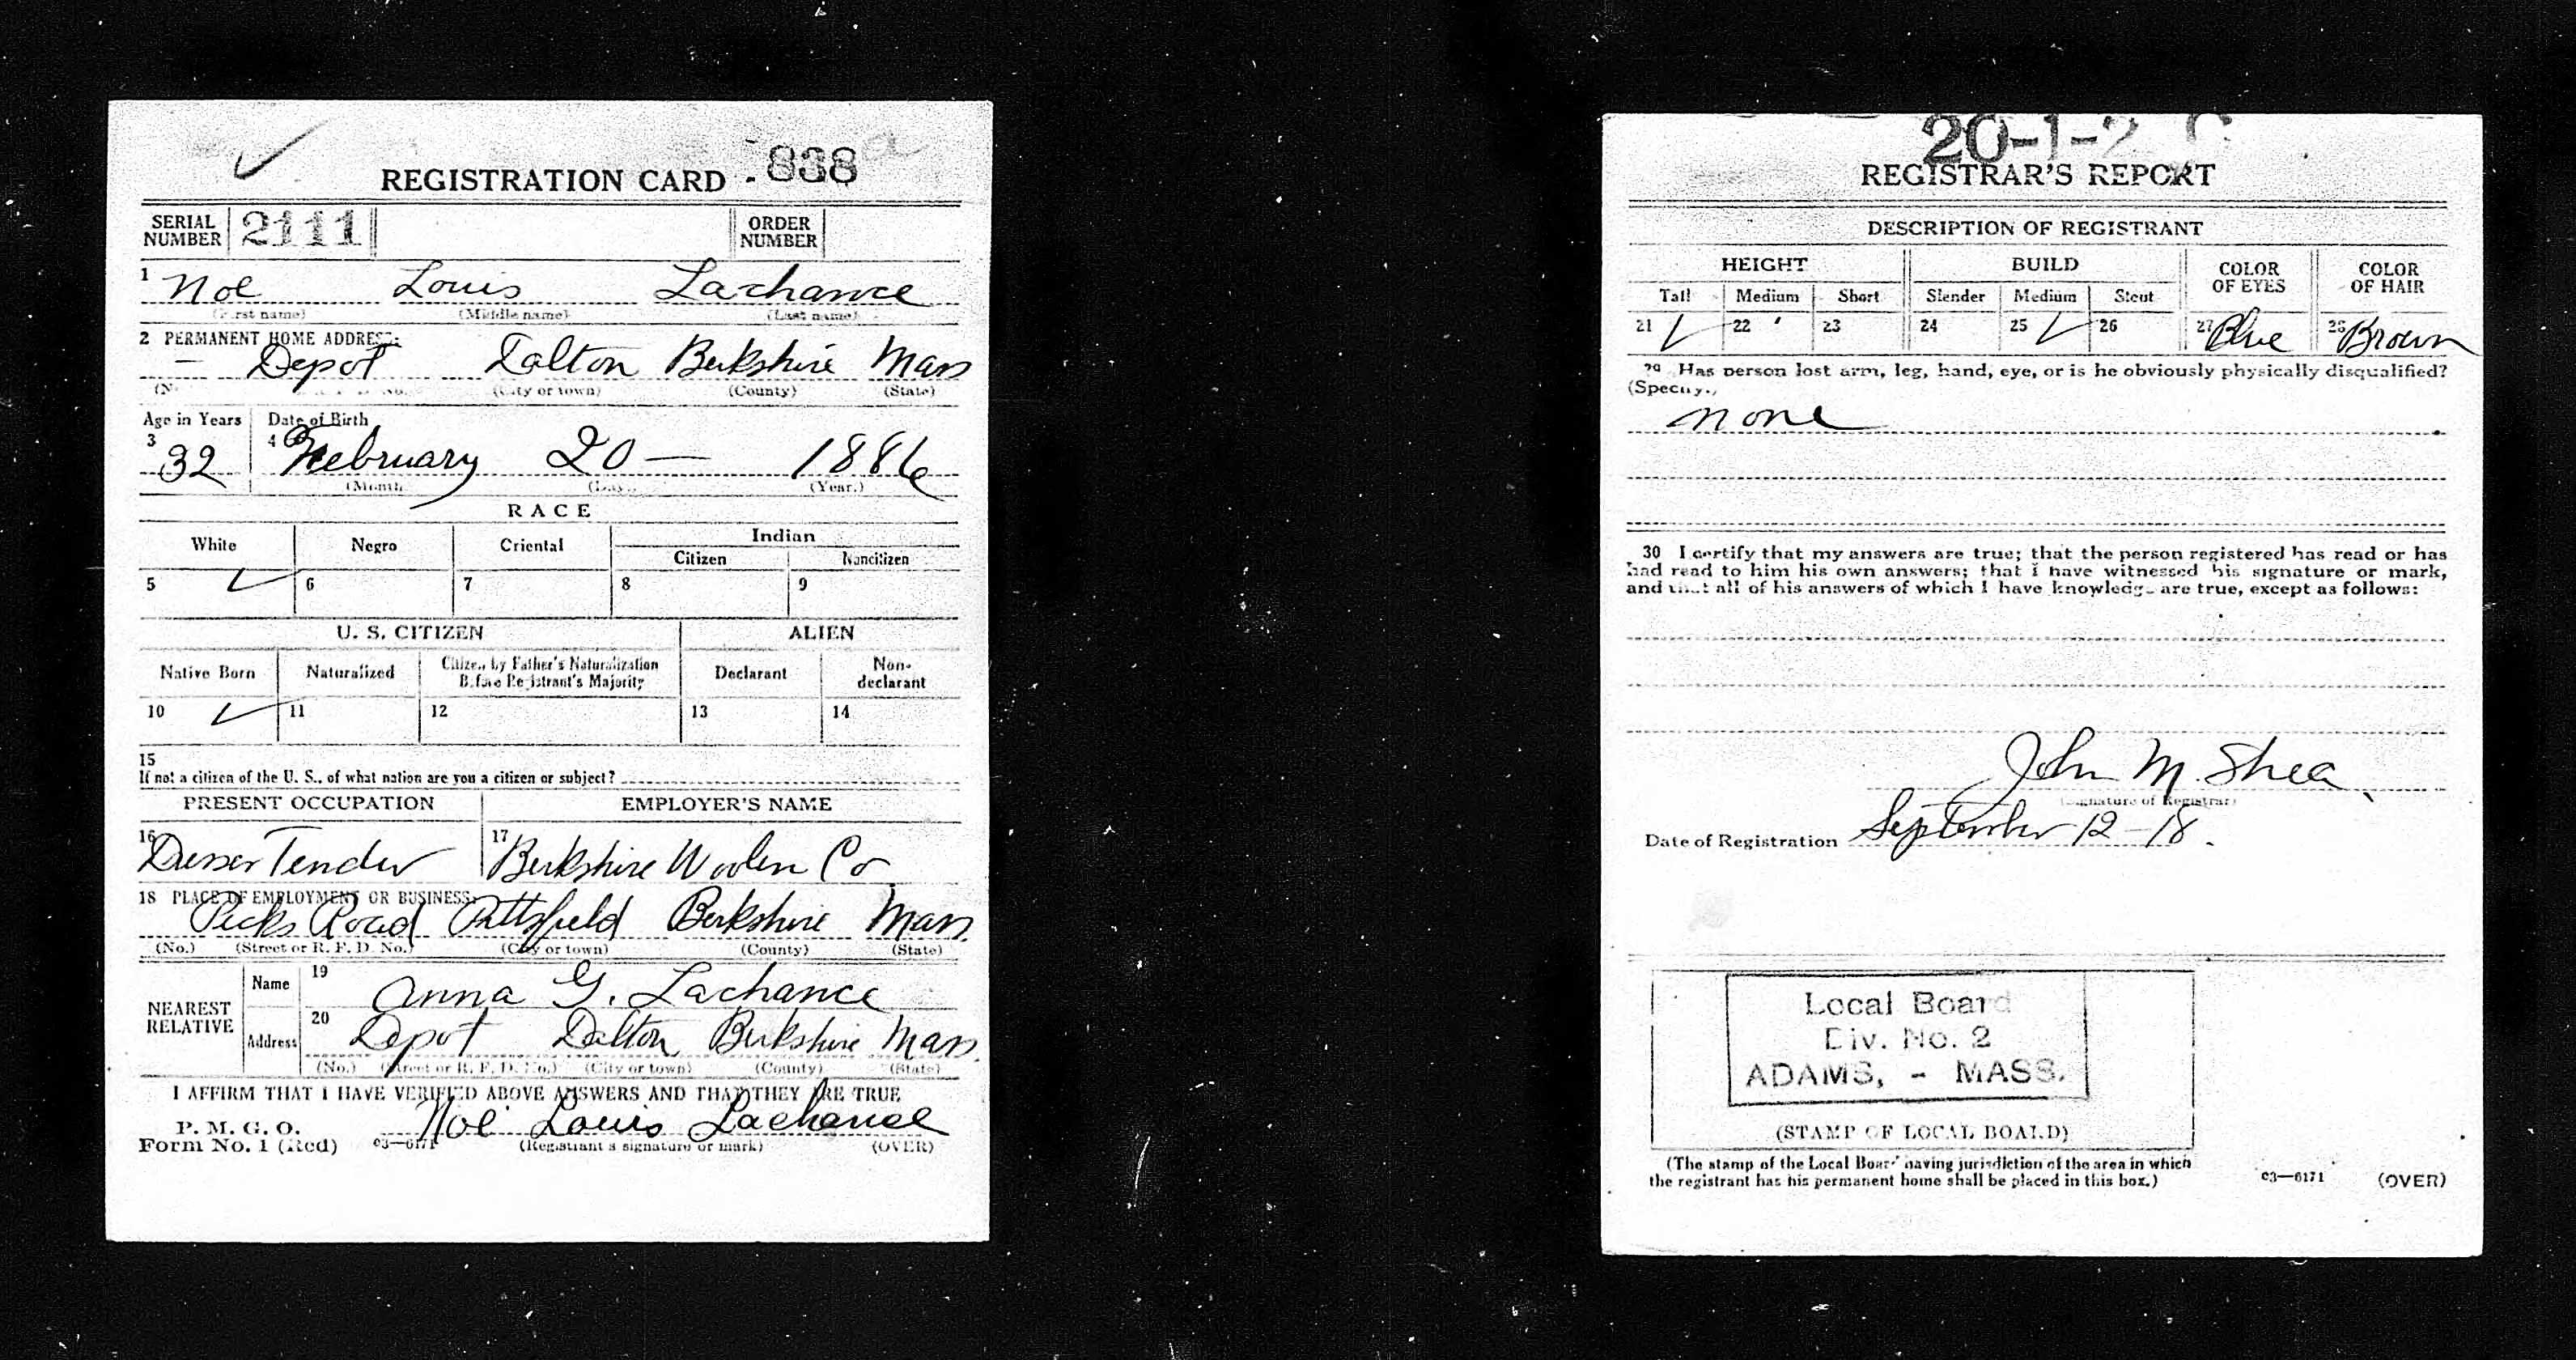 REGISTRATION CARD 838
SERIAL NUMBER 2111 ORDER NUMBER
1 Noe Louis Lachance
(First name) (Middle name) (Last name)
2 PERMANENT HOME ADDRESS:
— Depot Dalton Berkshire Mass
(City or town) (County) (State)
Age in Years Date of Birth
3 32 4 February 20 — 1886
(Month) (Year.)
RACE
White Negro Oriental Indian
Citizen Noncitizen
5 ✓ 6 7 8 9
U. S. CITIZEN ALIEN
Native Born Naturalized Citizen by Father's Naturalization Before Registrant's Majority Declarant Non-declarant
10 ✓ 11 12 13 14
15
If not a citizen of the U. S., of what nation are you a citizen or subject?
PRESENT OCCUPATION EMPLOYER'S NAME
16 Dresser Tender 17 Berkshire Woolen Co
18 PLACE OF EMPLOYMENT OR BUSINESS:
Pecks Road Pittsfield Berkshire Mass.
(No.) (Street or R. F. D. No.) (City or town) (County) (State)
NEAREST RELATIVE Name 19 Anna G. Lachance
Address 20 Depot Dalton Berkshire Mass.
(No.) (Street or R. F. D. No.) (City or town) (County) (State)
I AFFIRM THAT I HAVE VERIFIED ABOVE ANSWERS AND THAT THEY ARE TRUE
P. M. G. O.
Form No. 1 (Red) 03—6171 Noe Louis Lachance
(Registrant's signature or mark) (OVER)
20-1-2 C
REGISTRAR'S REPORT
DESCRIPTION OF REGISTRANT
HEIGHT BUILD COLOR OF EYES COLOR OF HAIR
Tall Medium Short Slender Medium Stout
21 ✓ 22 23 24 25 ✓ 26 27 Blue 28 Brown
29 Has person lost arm, leg, hand, eye, or is he obviously physically disqualified?
(Specify.)
none
30 I certify that my answers are true; that the person registered has read or has
had read to him his own answers; that I have witnessed his signature or mark,
and that all of his answers of which I have knowledge are true, except as follows:
John M. Shea
(Signature of Registrar)
Date of Registration September 12 - 18.
Local Board
Div. No. 2
ADAMS, - MASS.
(STAMP OF LOCAL BOARD)
(The stamp of the Local Board having jurisdiction of the area in which
the registrant has his permanent home shall be placed in this box.)
03—6171 (OVER)